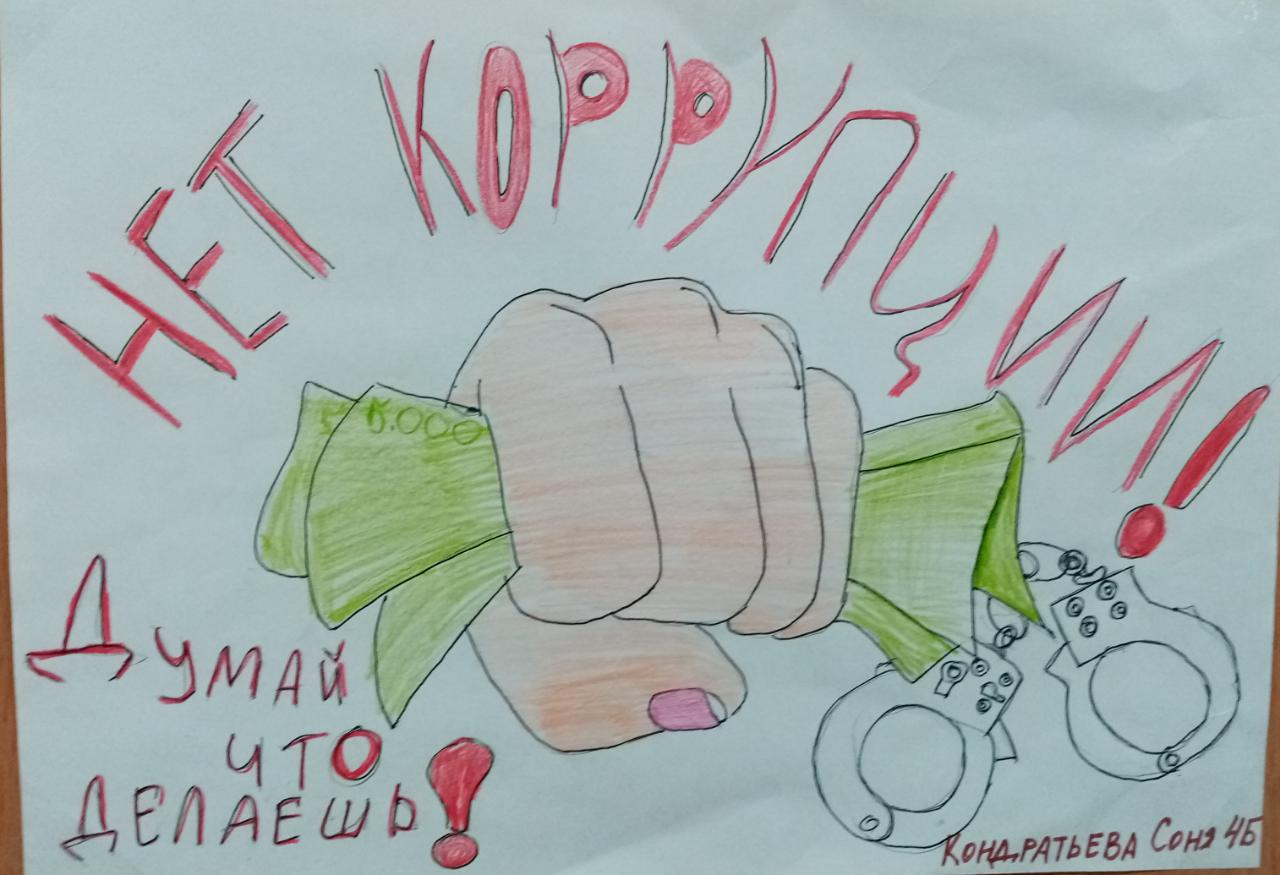 НЕТ КОРРУПЦИИ!
ДУМАЙ
ЧТО
ДЕЛАЕШЬ!
КОНДРАТЬЕВА СОНЯ 4Б